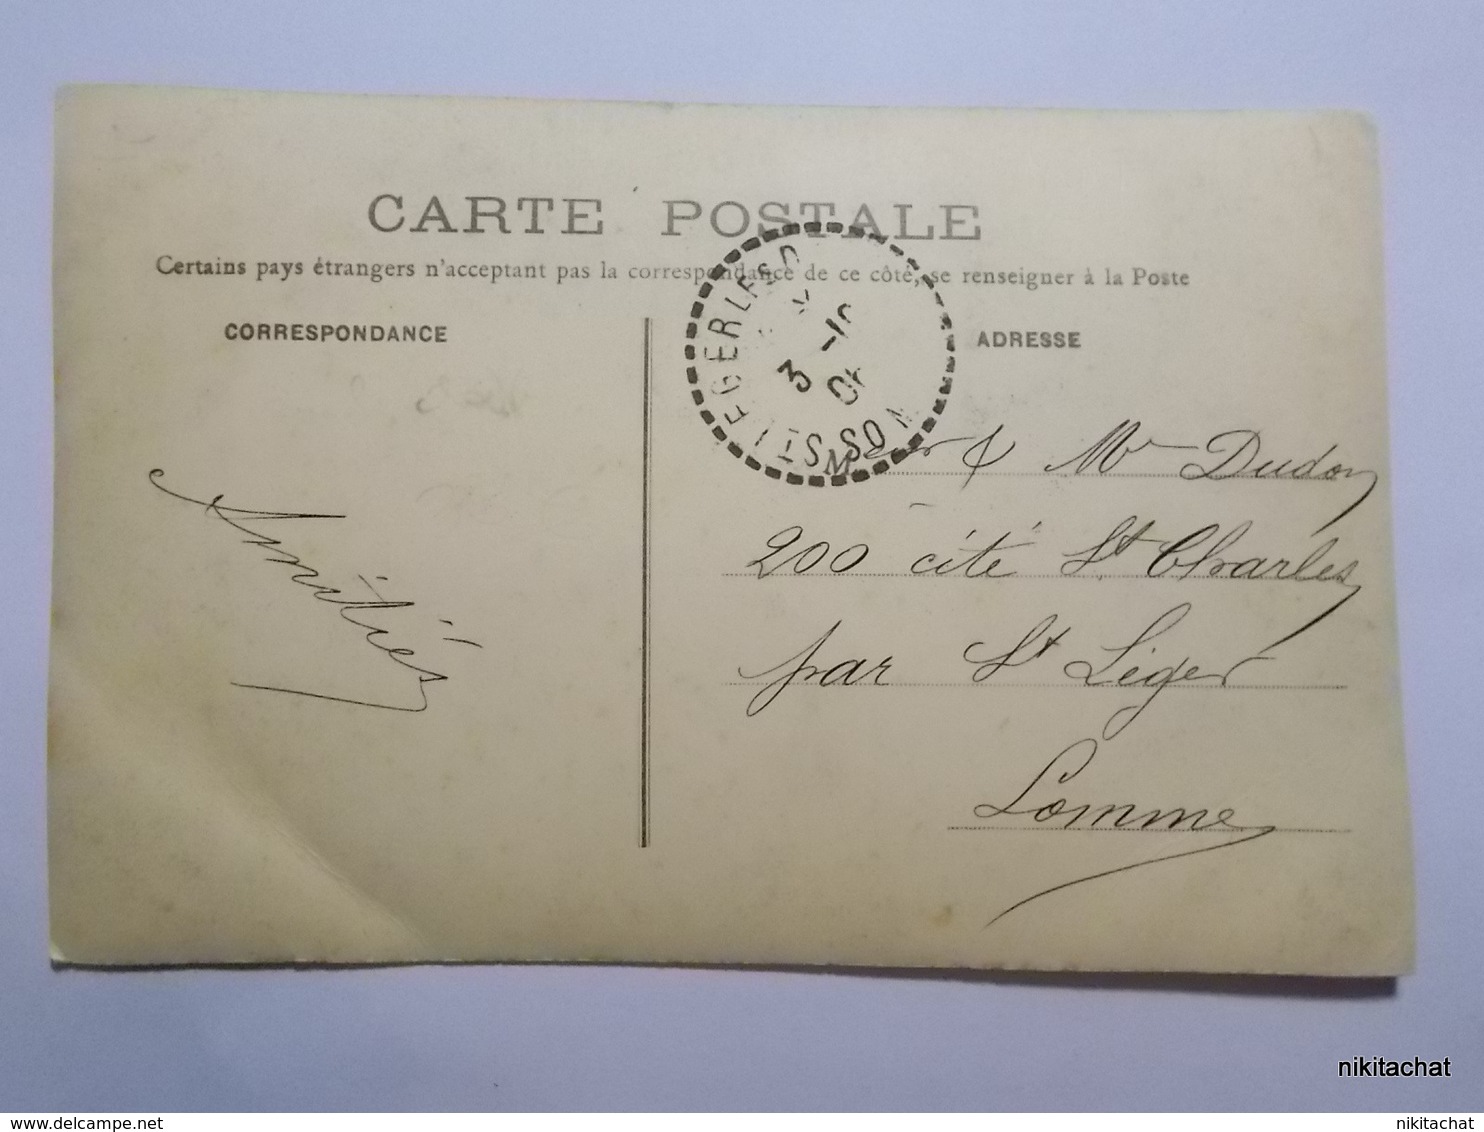 CARTE POSTALE
Certains pays étrangers n'acceptant pas la correspondance de ce côté, se renseigner à la Poste
CORRESPONDANCE
ADRESSE
STLEGERLESD
SOMME
3 -10
Amitiés
& Mr Dudon
200 cité St Charles
par St Léger
Somme
nikitachat
nikitachat.delcampe.net